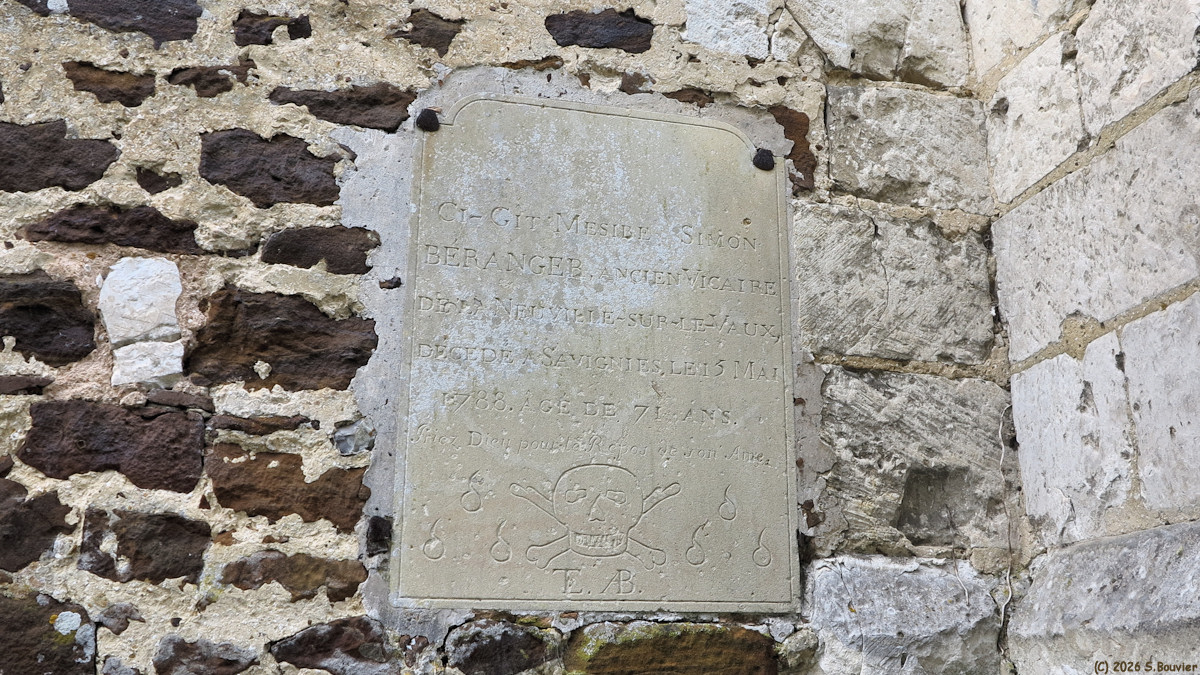 CI-GIT MESIRE SIMON
BERANGER, ANCIEN VICAIRE
DE LA NEUVILLE-SUR-LE-VAUX,
DECEDE A SAVIGNIES, LE 15 MAI
1788. AGE DE 71 ANS.
Priez Dieu pour le Repos de son Ame.
TE. AB.
(C) 2026 S.Bouvier